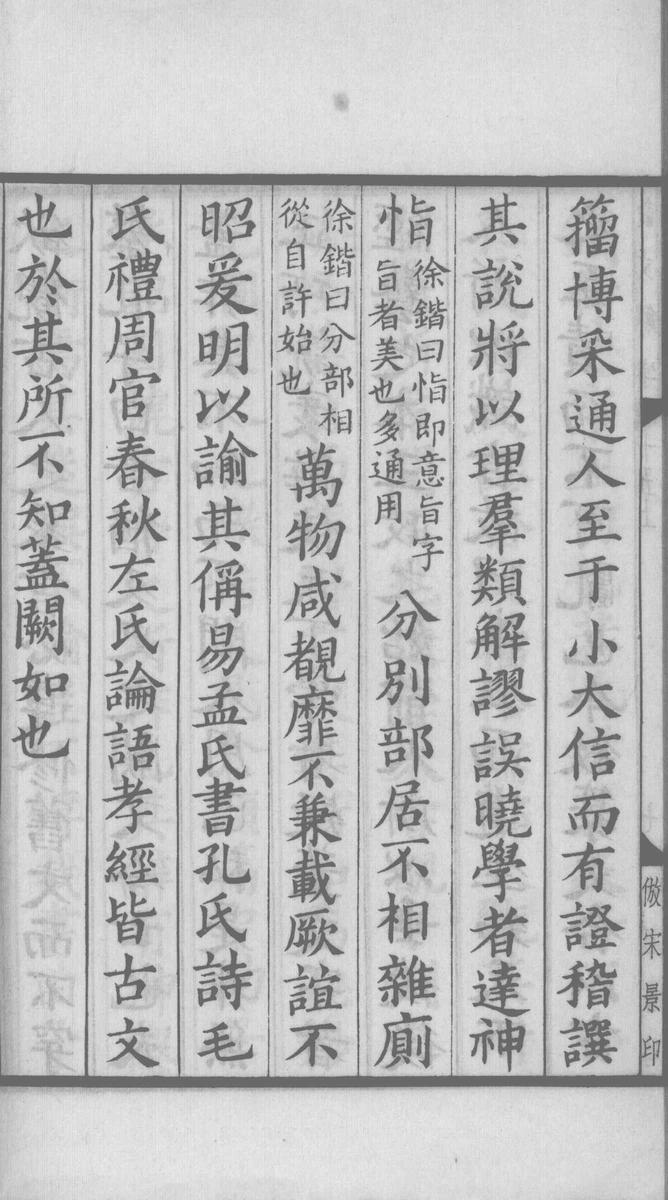 籀博采通人至于小大信而有證稽譔
其說將以理羣類解謬誤曉學者達神
恉徐鍇曰恉即意旨字
旨者美也多通用
分別部居不相雜廁
徐鍇曰分部相
從自許始也
萬物咸覩靡不兼載厥誼不
昭爰明以諭其偁易孟氏書孔氏詩毛
氏禮周官春秋左氏論語孝經皆古文
也於其所不知蓋闕如也
倣宋景印